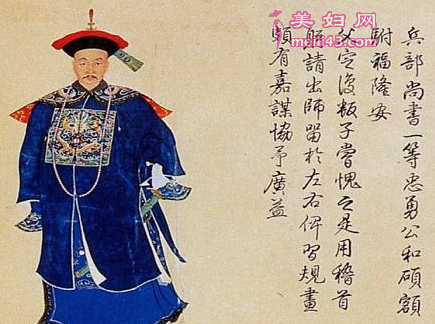 美妇网
meifu43.com
兵部尚書一等忠勇公和碩額
駙福隆安
父定後叛子嘗愧之是用稽首
師請出師留於左右俾習規畫
頗有嘉謀協予廣益